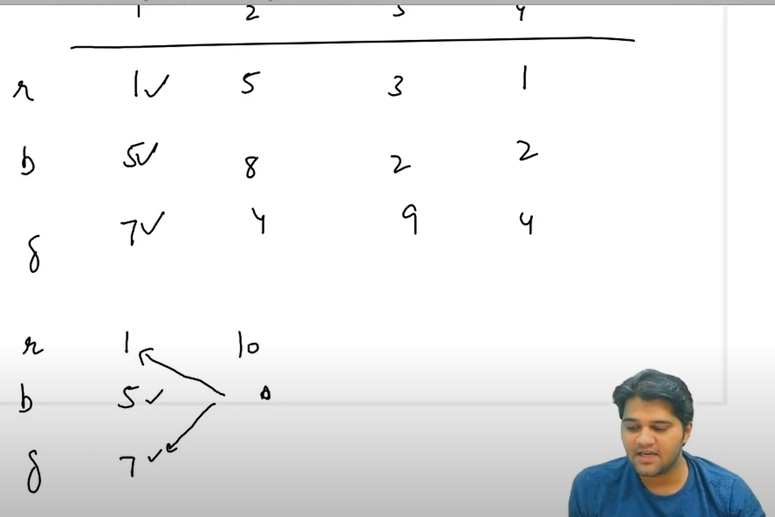 1 2 3 4
r 1✓ 5 3 1
b 5✓ 8 2 2
g 7✓ 4 9 4
r 1 10
b 5✓
g 7✓